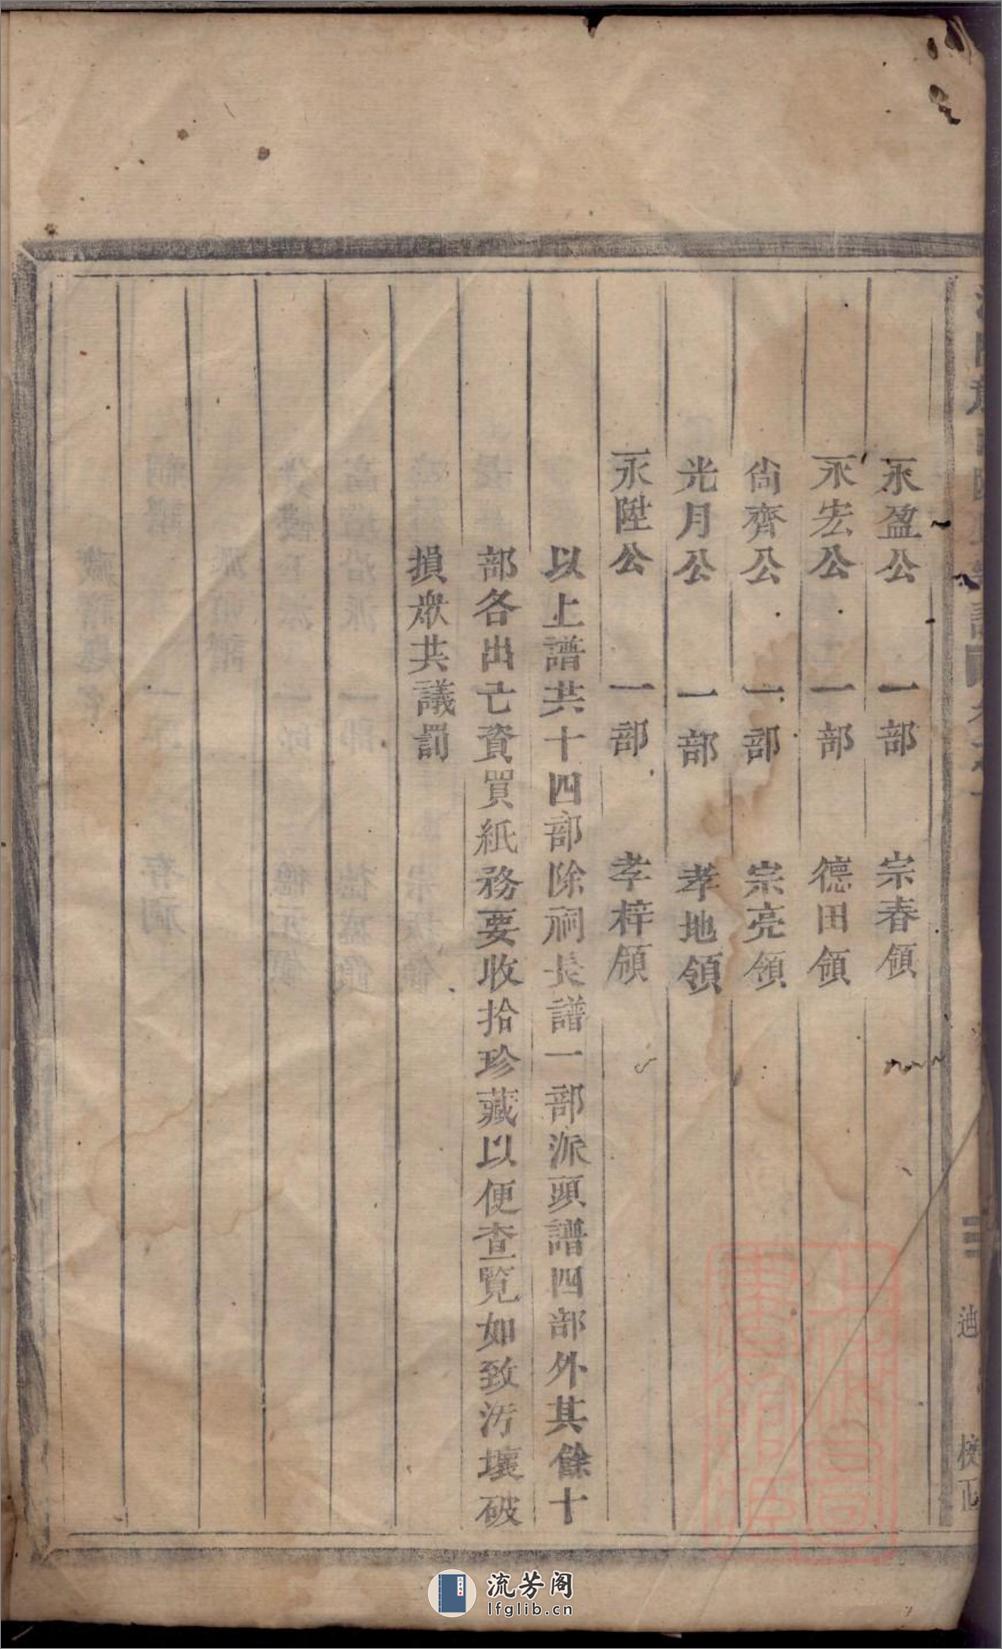 永盈公 一部 宗春領
永宏公 一部 德田領
尙齊公 一部 宗亮領
光月公 一部 孝地領
永陞公 一部 孝梓領
以上譜共十四部除祠長譜一部派頭譜四部外其餘十
部各出亡資買紙務要收拾珍藏以便查覧如致汚壞破
損衆共議罰
三
校正
流芳阁
lfglib.cn